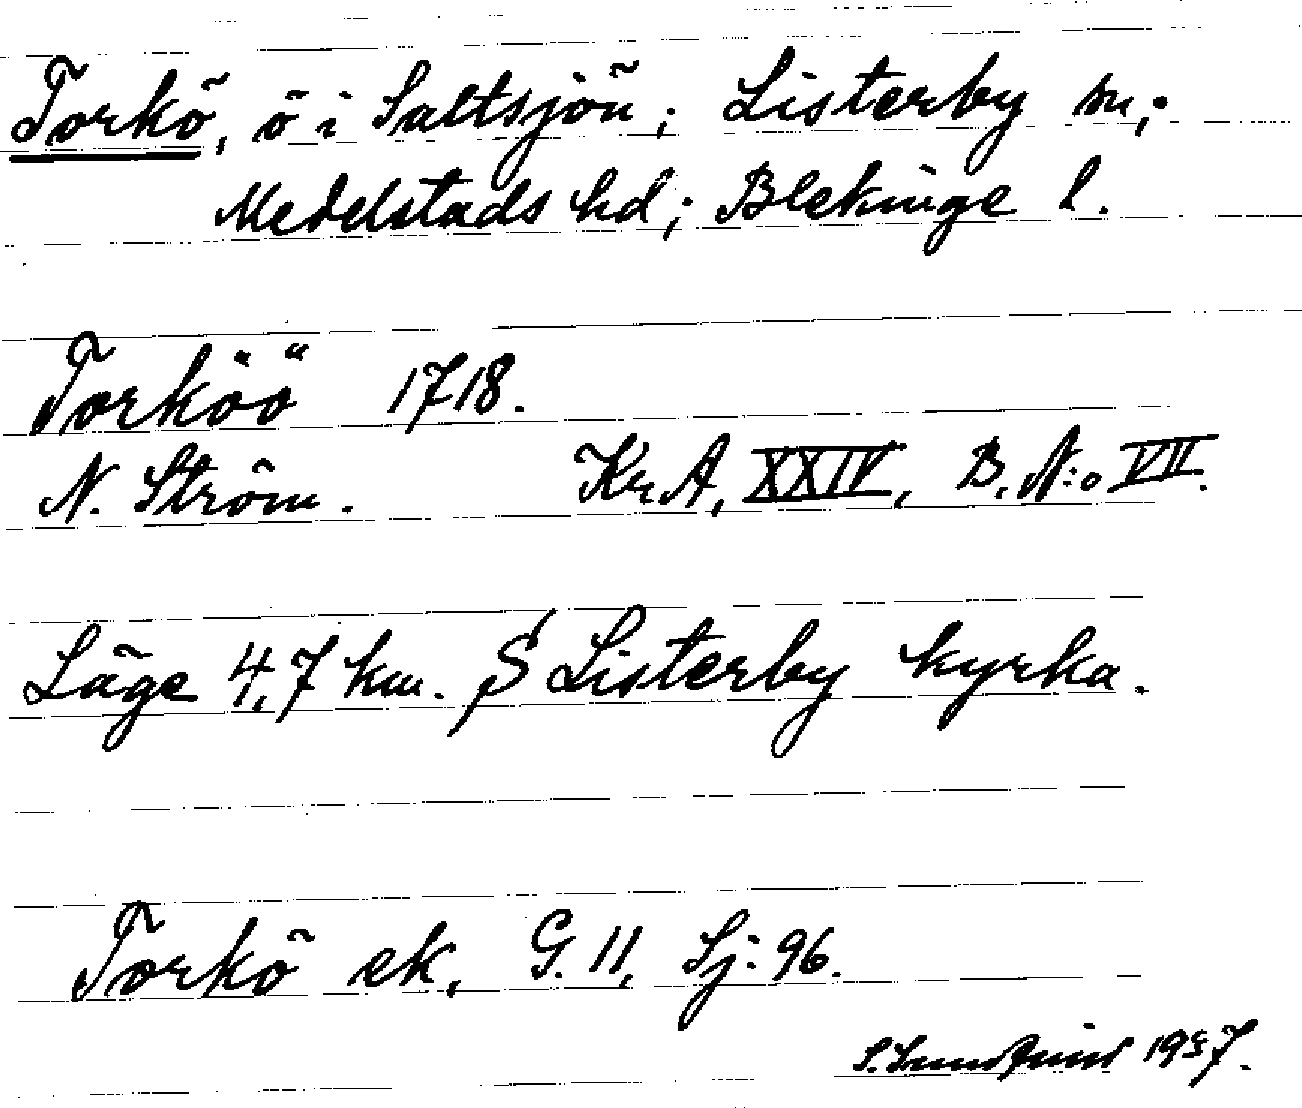 Torkö, ö i Saltsjön; Listerby sn;
Medelstads hd; Blekinge l.
Torköö 1718.
N. Ström. Kr.A, XXIV, B. N:o VII.
Läge 4,7 km. S Listerby kyrka.
Torkö ek. G. 11, Sj: 96.
S. 1957.